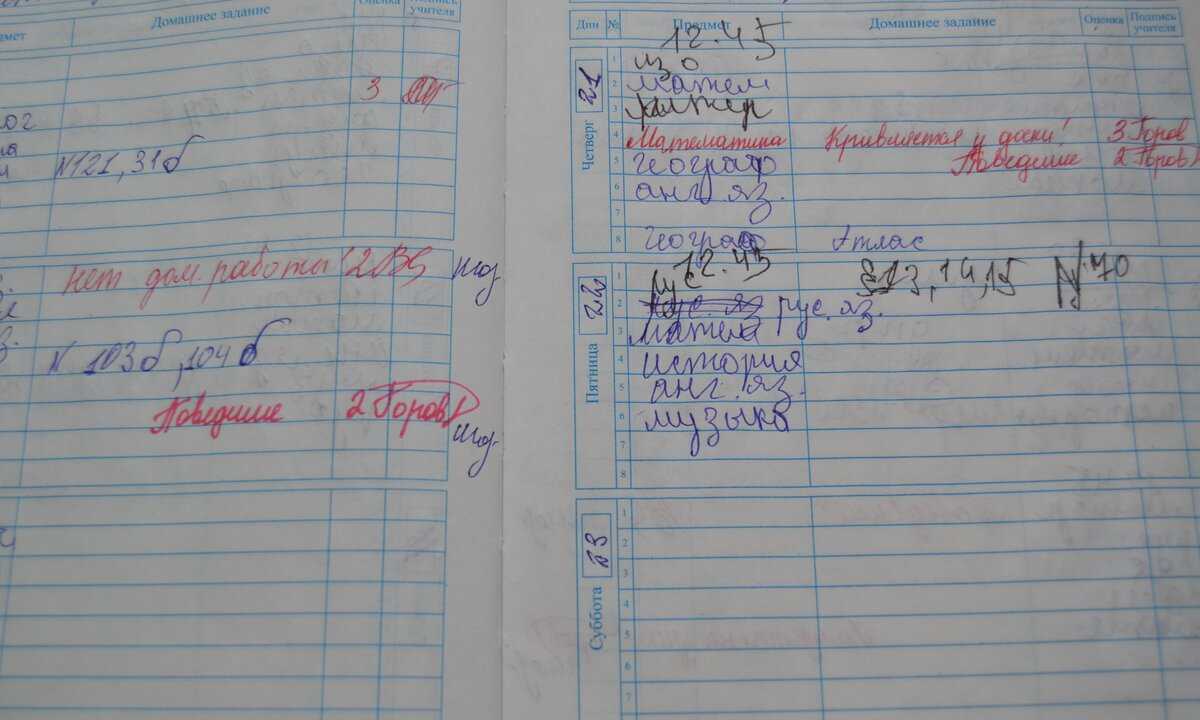 Домашнее задание
Оценка
Подпись учителя
3
№121, 31б
нет дом. работы! 2
№ 103б, 104б
Поведение 2 Горов
Дни № Предмет Домашнее задание Оценка Подпись учителя
12.45
Четверг 21
1 изо
2 матем
3
4 Математика Кривляется у доски! 3 Горов
5 географ Поведение 2 Горов
6 анг. яз.
7
8 географ Атлас
12.45
Пятница 22
1 рус §13, 14, 15 №70
2 рус. яз.
3 матем
4 история
5 анг. яз.
6 музыка
7
8
Суббота 23
1
2
3
4
5
6
7